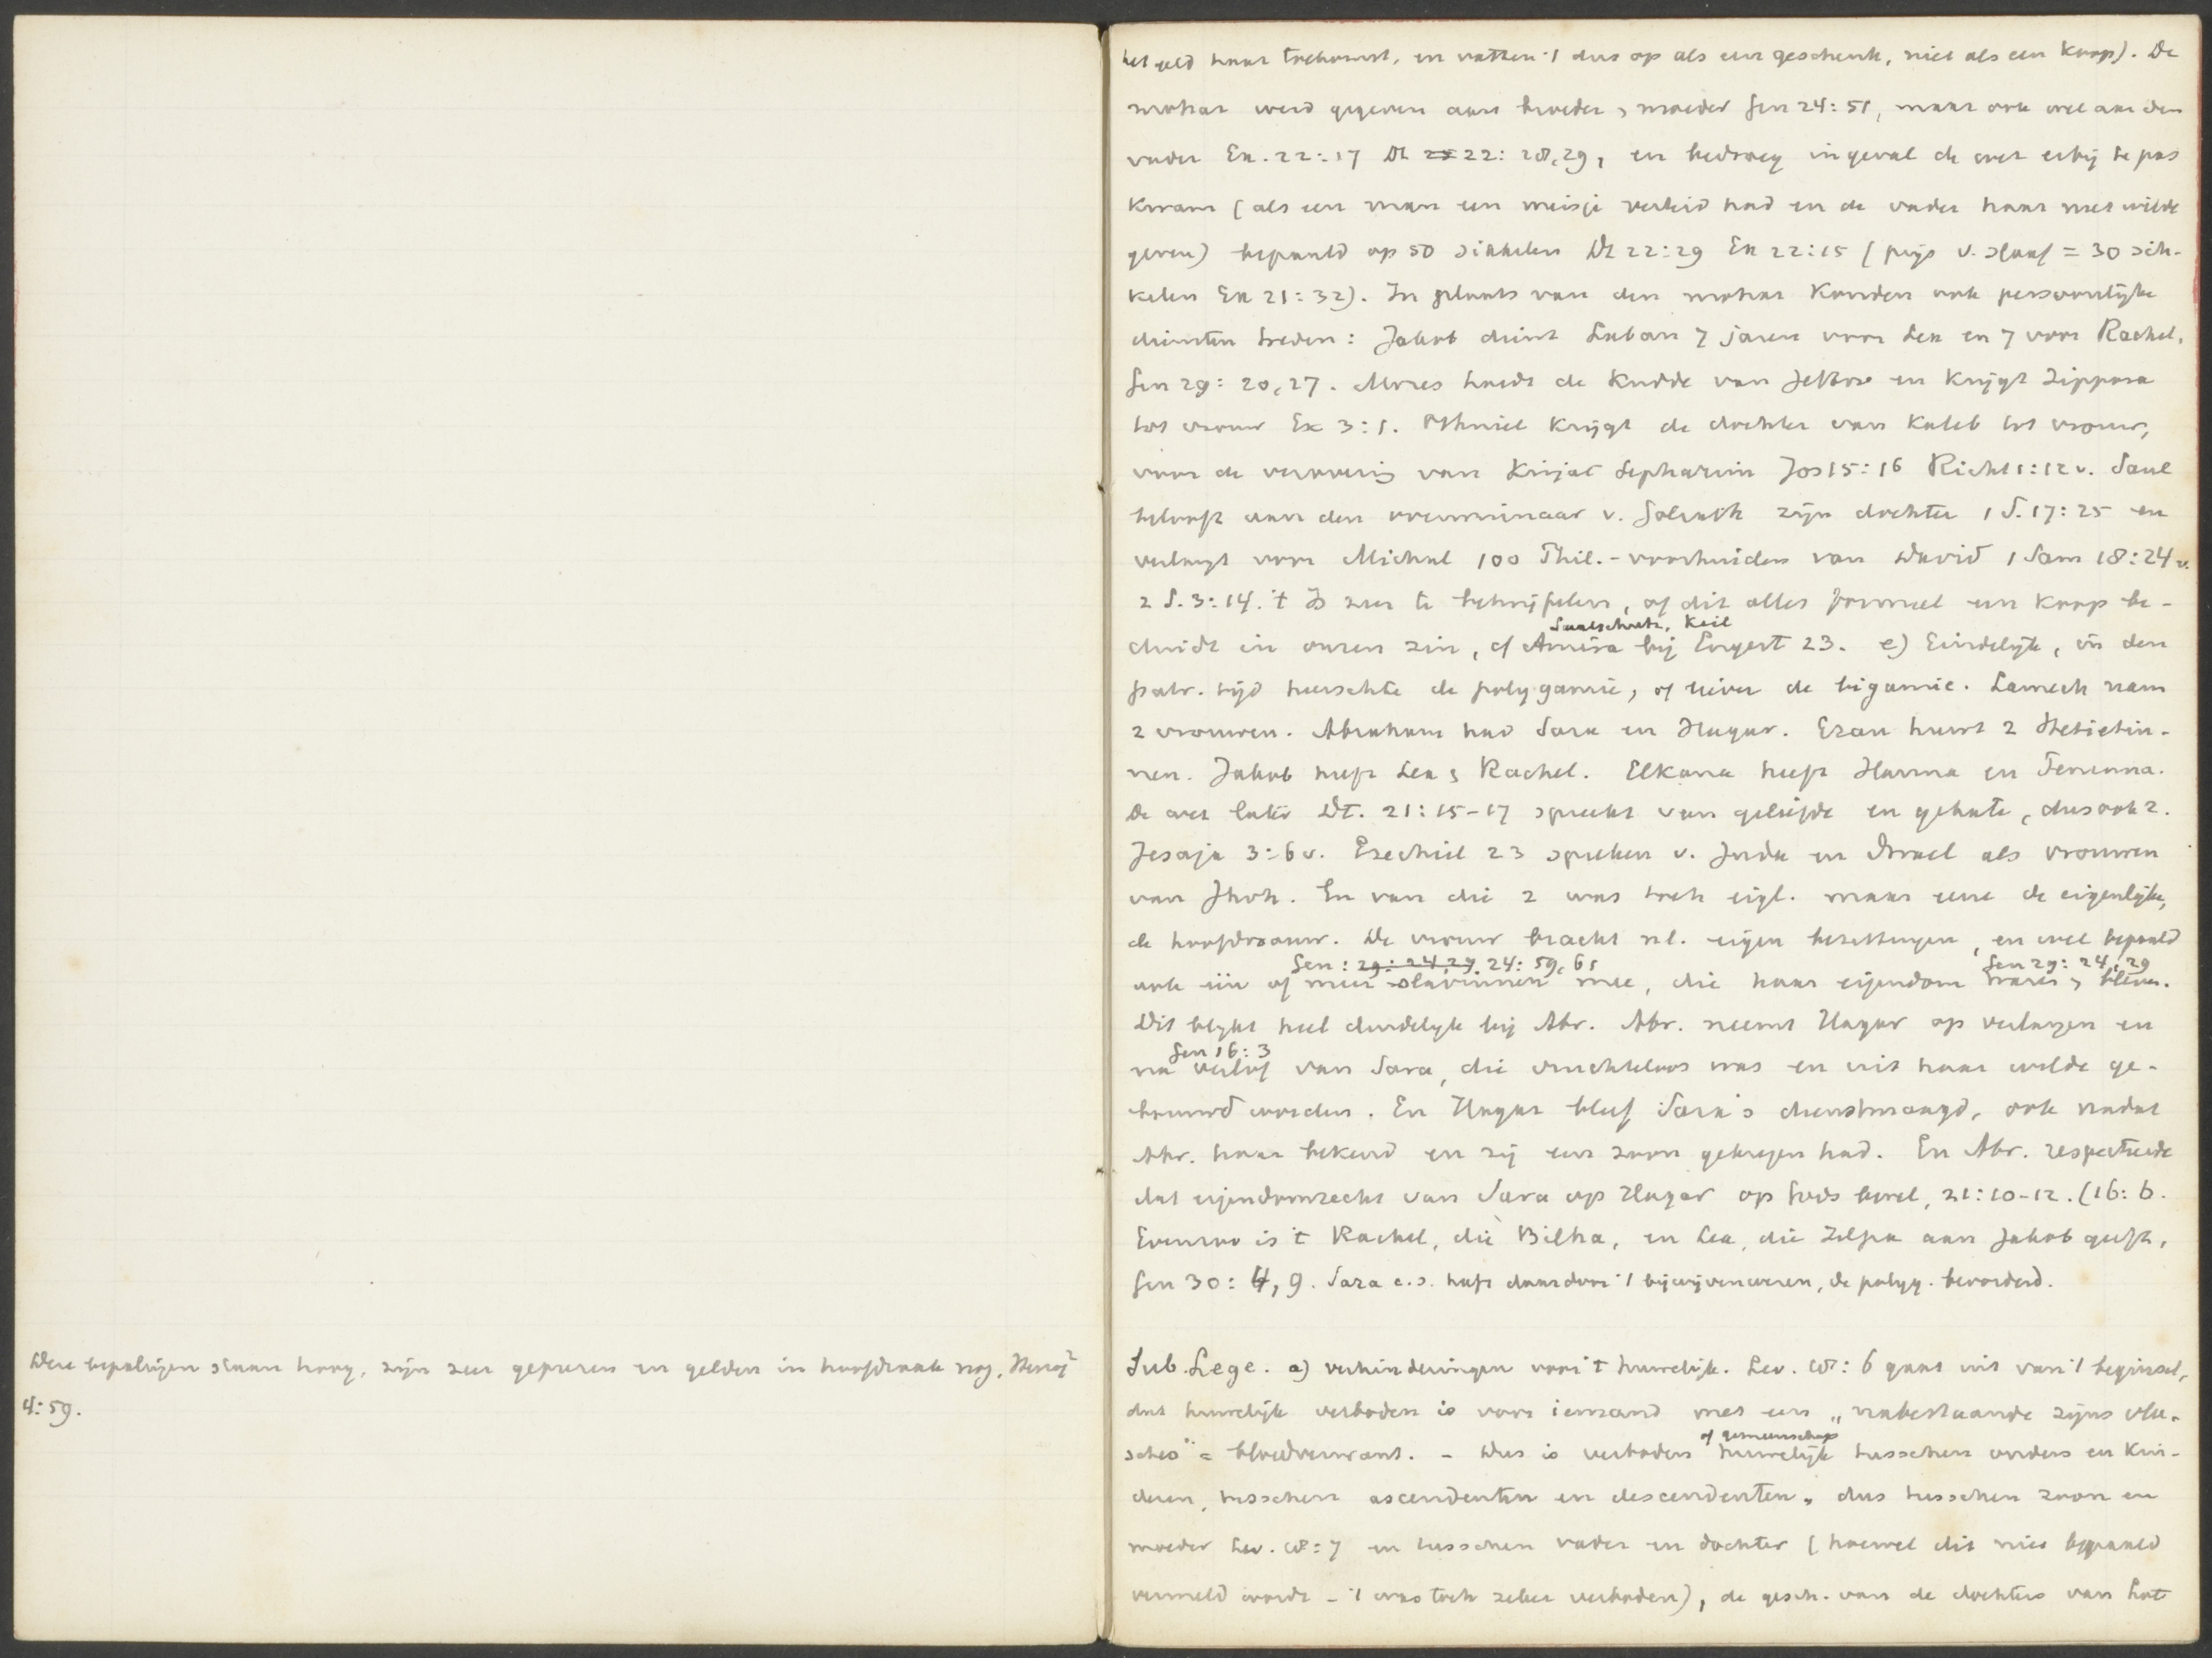 Deze bepalingen staan hoog, zijn zeer geprezen en gelden in hoofdzaak nog. Herzog²
4:59.
het geld haar toekomst, en vatten 't dus op als een geschenk, niet als een koop). De
mohar werd gegeven aan broeder & moeder Gen 24:51, maar ook wel aan den
vader Ex. 22:17 Dt 22:28,29, en bedroeg ingeval de wet erbij te pas
kwam (als een man een meisje verleid had en de vader haar niet wilde
geven) bepaald op 50 sikkelen Dt 22:29 Ex 22:15 (prijs v. slaaf = 30 sik-
kelen Ex 21:32). In plaats van den mohar konden ook persoonlijke
diensten treden: Jakob dient Laban 7 jaren voor Lea en 7 voor Rachel,
Gen 29:20,27. Mozes hoedt de kudde van Jethro en krijgt Zippora
tot vrouw Ex 3:1. Othniel krijgt de dochter van Kaleb tot vrouw,
voor de verovering van Kirjat Sepharim Jos 15:16 Richt 1:12v. Saul
belooft aan den overwinnaar v. Goliath zijn dochter 1 S. 17:25 en
verlangt voor Michal 100 Phil.-voorhuiden van David 1 Sam 18:24v.
2 S. 3:14. 't Is zeer te betwijfelen, of dit alles formeel een koop be-
Saalschutz, Keil
duidt in onzen zin, cf bij Engert 23. e) Eindelijk, in den
patr. tijd heerschte de polygamie, of liever de bigamie. Lamech nam
2 vrouwen. Abraham had Sara en Hagar. Ezau huwt 2 Hetietin-
nen. Jakob heeft Lea & Rachel. Elkana heeft Hanna en Peninna.
De wet later Dt. 21:15-17 spreekt van geliefde en gehate, dus ook 2.
Jesaja 3:6v. Ezechiel 23 spreken v. Juda en Israel als vrouwen
van Jhvh. En van die 2 was toch eigl. maar eene de eigenlijke,
de hoofdvrouw. De vrouw bracht nl. eigen bezittingen, en wel bepaald
Gen: 29:24,29. 24:59,61 Gen 29:24,29
ook één of meer slavinnen mee, die haar eigendom waren & bleven.
Dit blijkt heel duidelijk bij Abr. Abr. neemt Hagar op verlangen en
Gen 16:3
na verlof van Sara, die vruchteloos was en uit haar wilde ge-
bouwd worden. En Hagar bleef Sara's dienstmaagd, ook nadat
Abr. haar bekend en zij een zoon gekregen had. En Abr. respecteerde
dat eigendomsrecht van Sara op Hagar op Gods bevel, 21:10-12. (16:6.
Evenzoo is 't Rachel, die Bilha, en Lea, die Zilpa aan Jakob geeft,
Gen 30:4,9. Sara c.s. heeft daardoor 't bijwijvenwezen, de polyg. bevorderd.
Sub. Lege. a) verhinderingen voor 't huwelijk. Lev. 18:6 gaat uit van 't beginsel,
dat huwelijk verboden is voor iemand met een „nabestaande zijns vlee-
of gemeenschap
sches" = bloedverwant. - Dus is verboden huwelijk tusschen ouders en kin-
deren, tusschen ascendenten en descendenten, dus tusschen zoon en
moeder Lev. 18:7 en tusschen vader en dochter (hoewel dit niet bepaald
vermeld wordt - 't was toch zeker verboden), de gesch. van de dochters van Lot